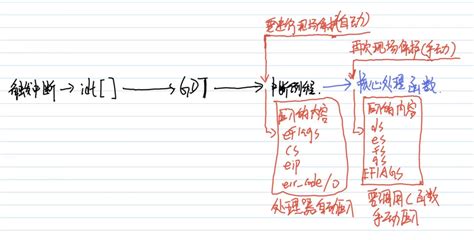 要进行现场保护(自动)
再次现场保护(手动)
触发中断 → idt[] → GDT → 中断例程. → 核心处理函数.
压入的内容
eflags
cs
eip
err_code/0
处理器自动压入
压入的内容
ds
es
fs
gs
EFLAGS
要调用C函数
手动压入